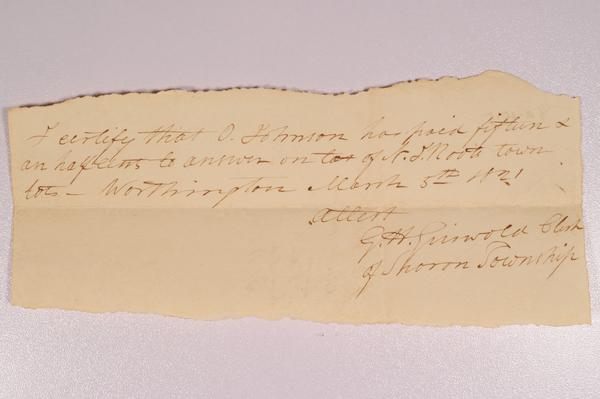 I certify that O. Johnson has paid fifteen &
an half cents to answer on tax of N. J. Roots town
lots – Worthington March 5th 1821
Attest
G. H. Griswold Clerk
of Sharon Township